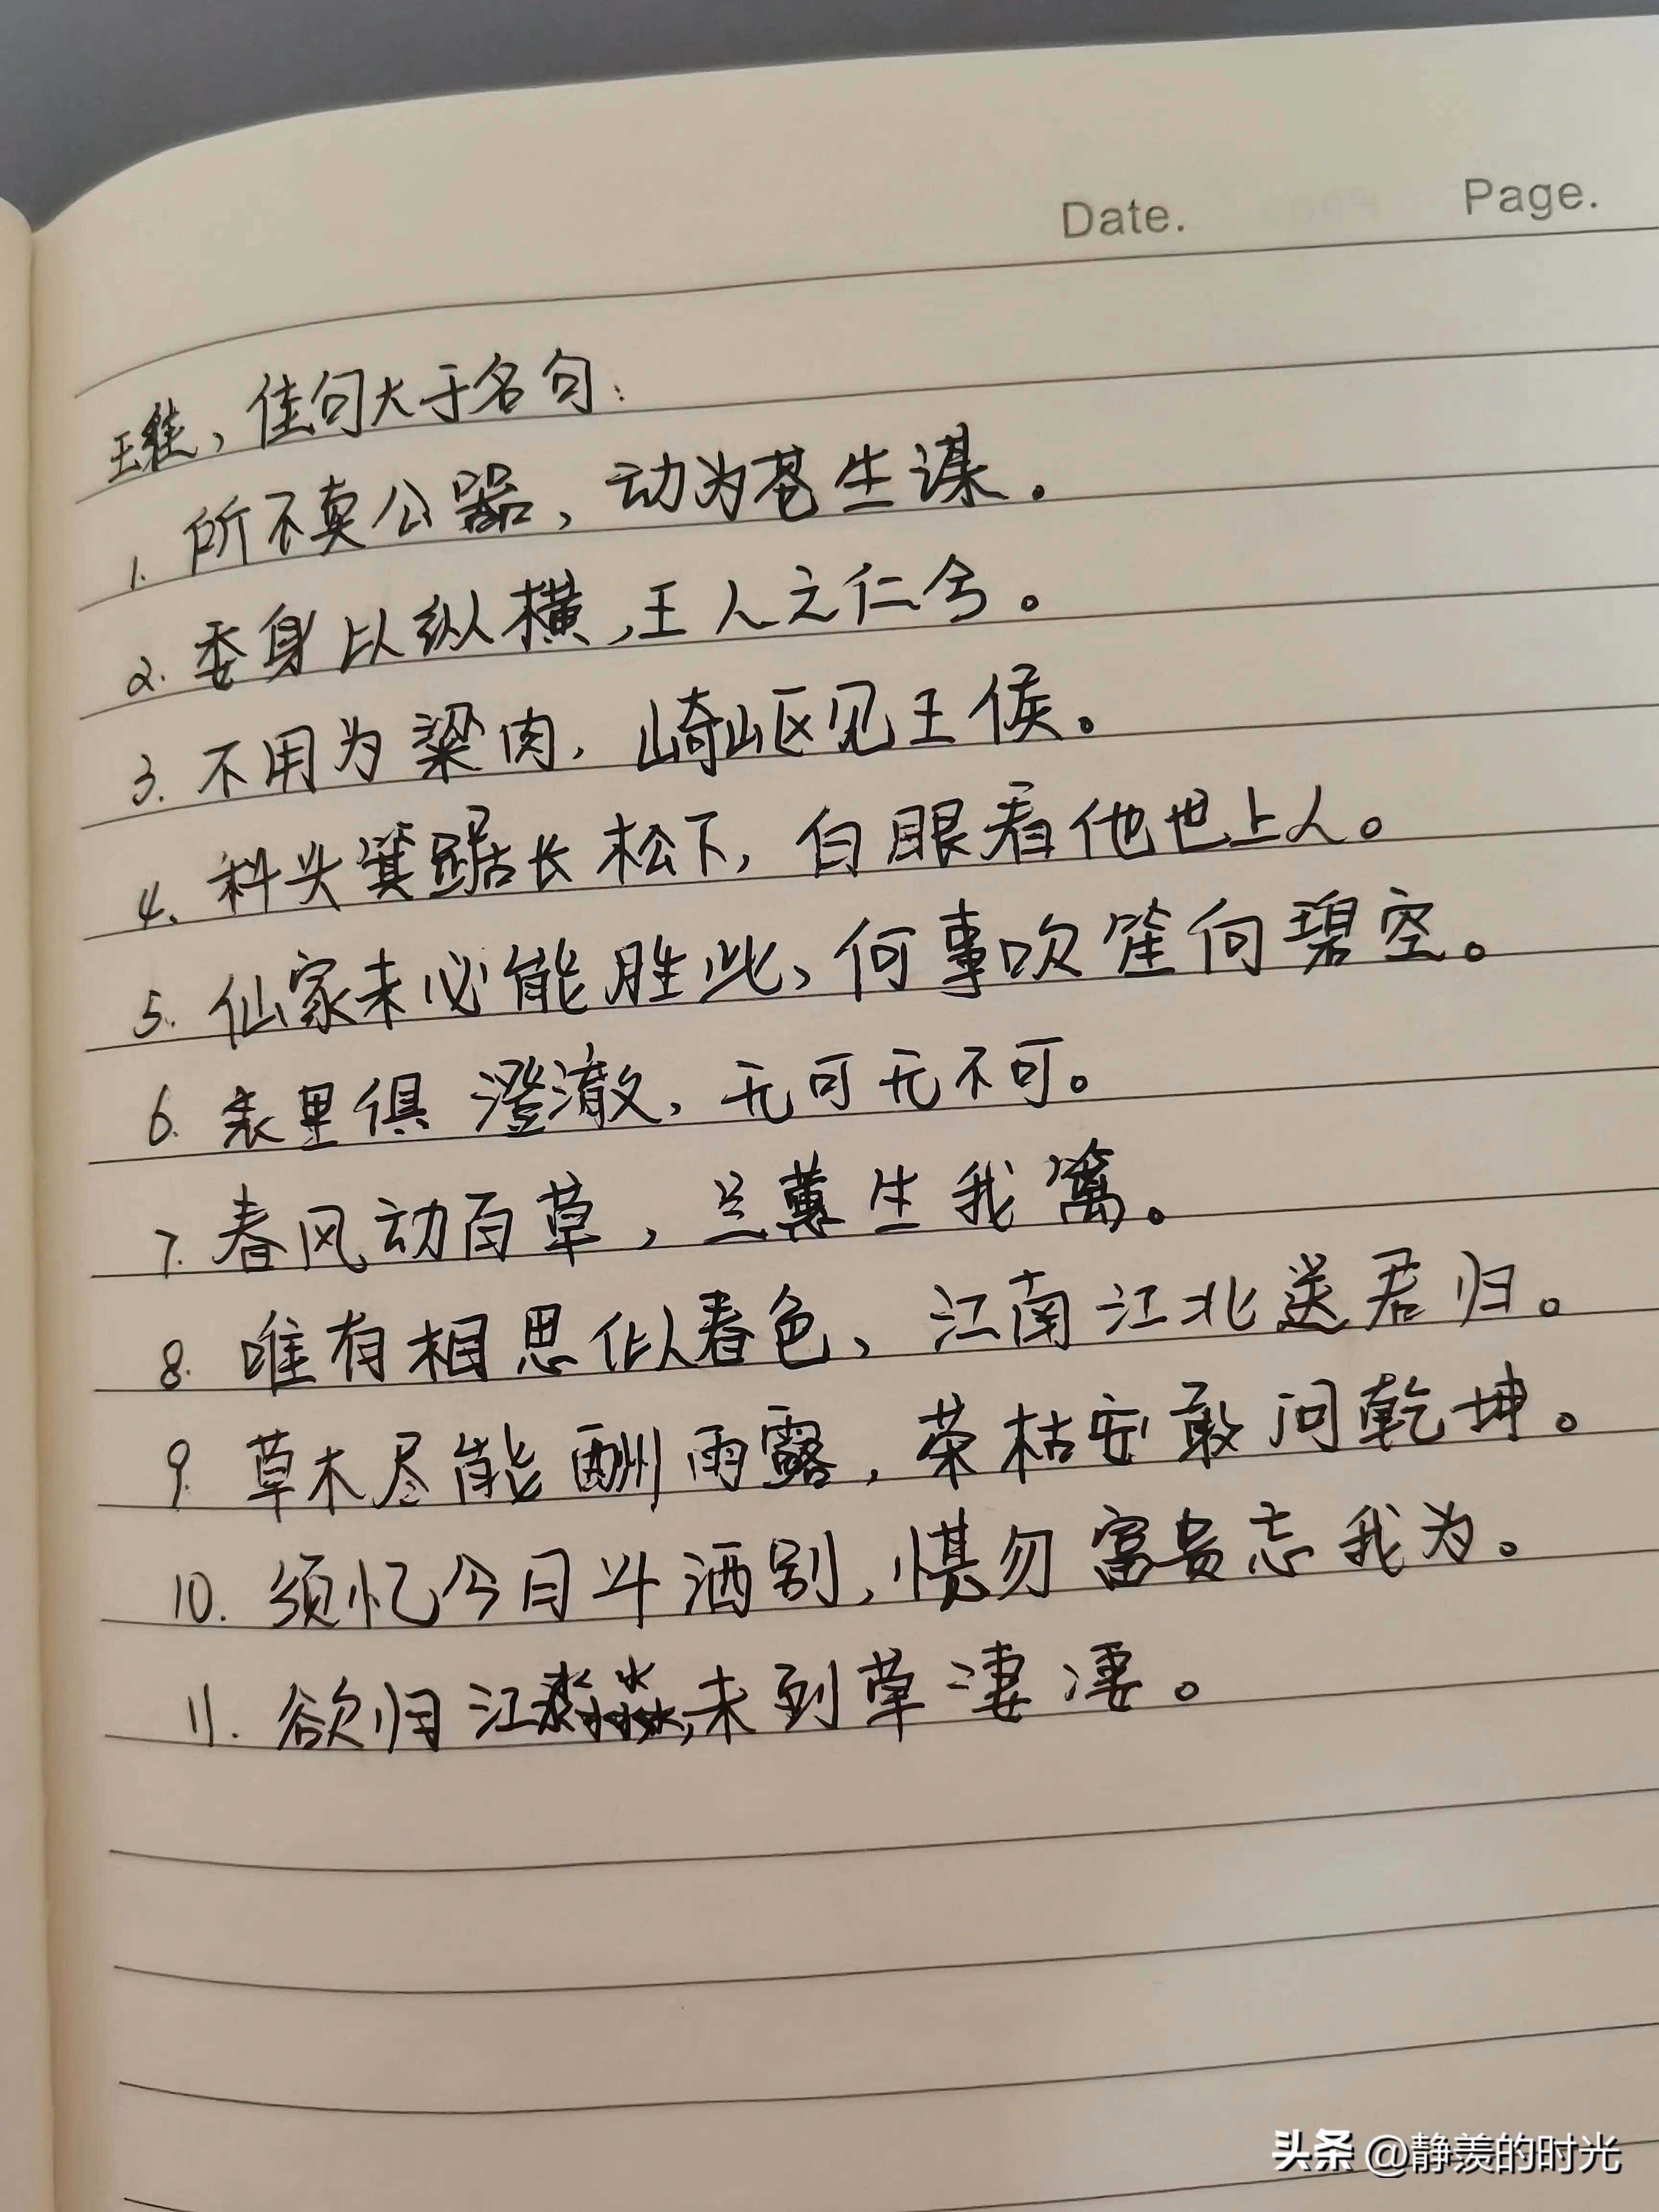 Date. Page.
王维，佳句大于名句：
1. 所不卖公器，动为苍生谋。
2. 委身以纵横，王人之仁兮。
3. 不用为粱肉，崎岖见王侯。
4. 科头箕踞长松下，白眼看他世上人。
5. 仙家未必能胜此，何事吹笙向碧空。
6. 表里俱澄澈，无可无不可。
7. 春风动百草，兰蕙生我篱。
8. 唯有相思似春色，江南江北送君归。
9. 草木尽能酬雨露，荣枯安敢问乾坤。
10. 须忆今日斗酒别，慎勿富贵忘我为。
11. 欲归江淼淼，未到草凄凄。
头条 @静羡的时光